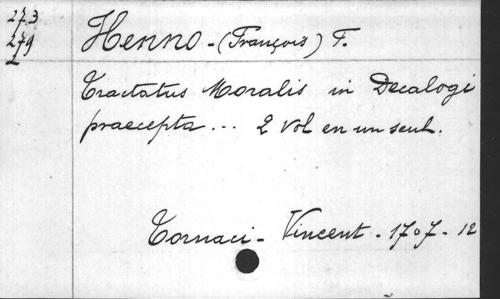 273
279
2
Henno - (François) F.
Tractatus Moralis in Decalogi
praecepta ... 2 vol en un seul.
Tornaci - Vincent - 1707 - 12